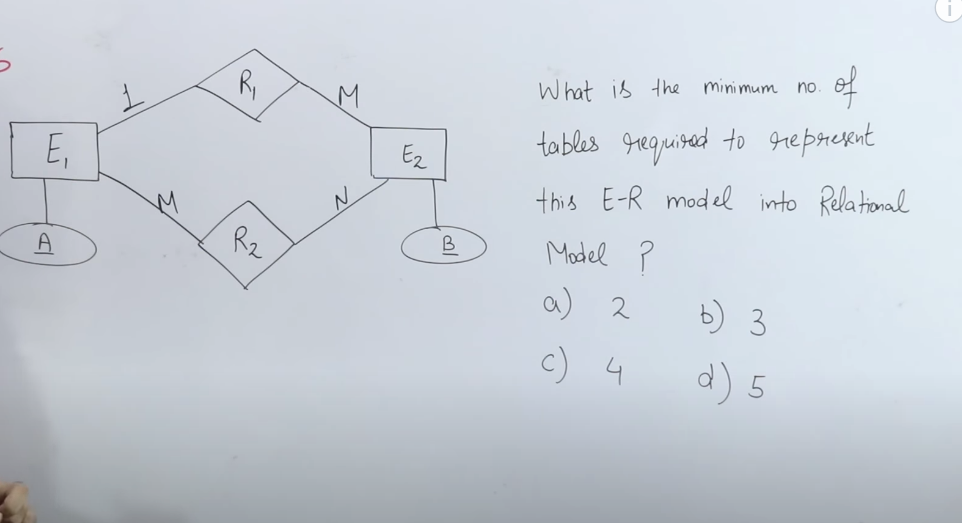 1
R₁
M
E₁
E₂
M
N
A
R₂
B
What is the minimum no. of
tables required to represent
this E-R model into Relational
Model ?
a) 2 b) 3
c) 4 d) 5
i